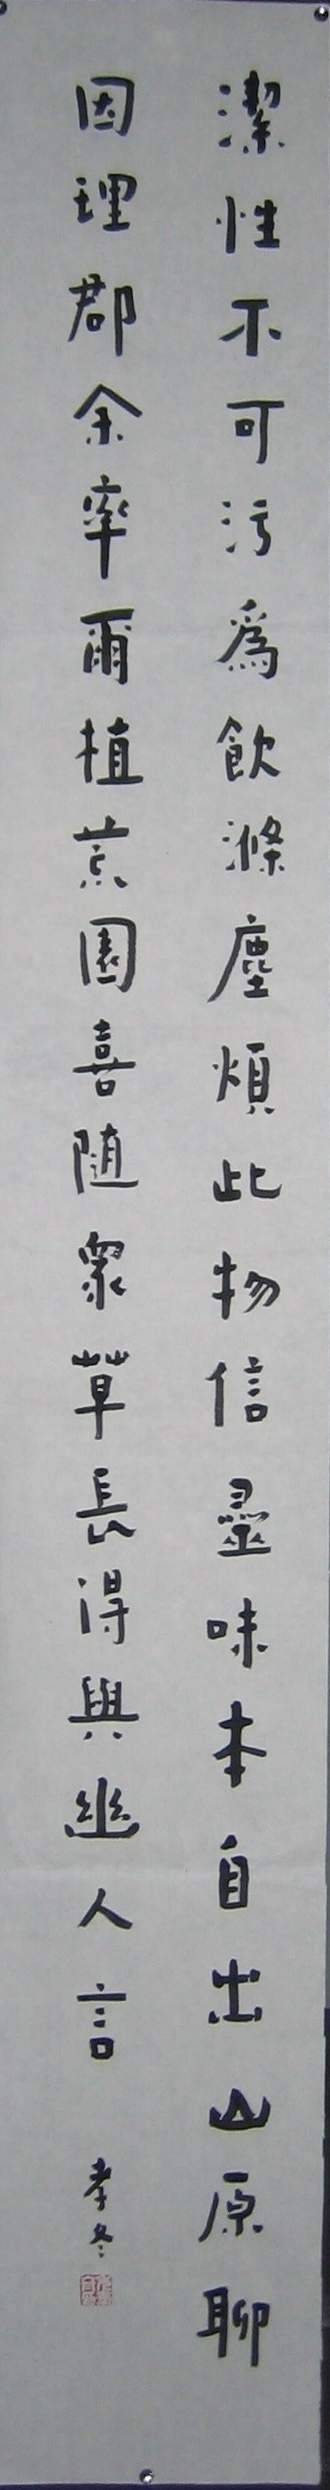 潔性不可污為飲滌塵煩此物信靈味本自出山原聊
因理郡余率爾植荒園喜随衆草長得與幽人言
孝冬